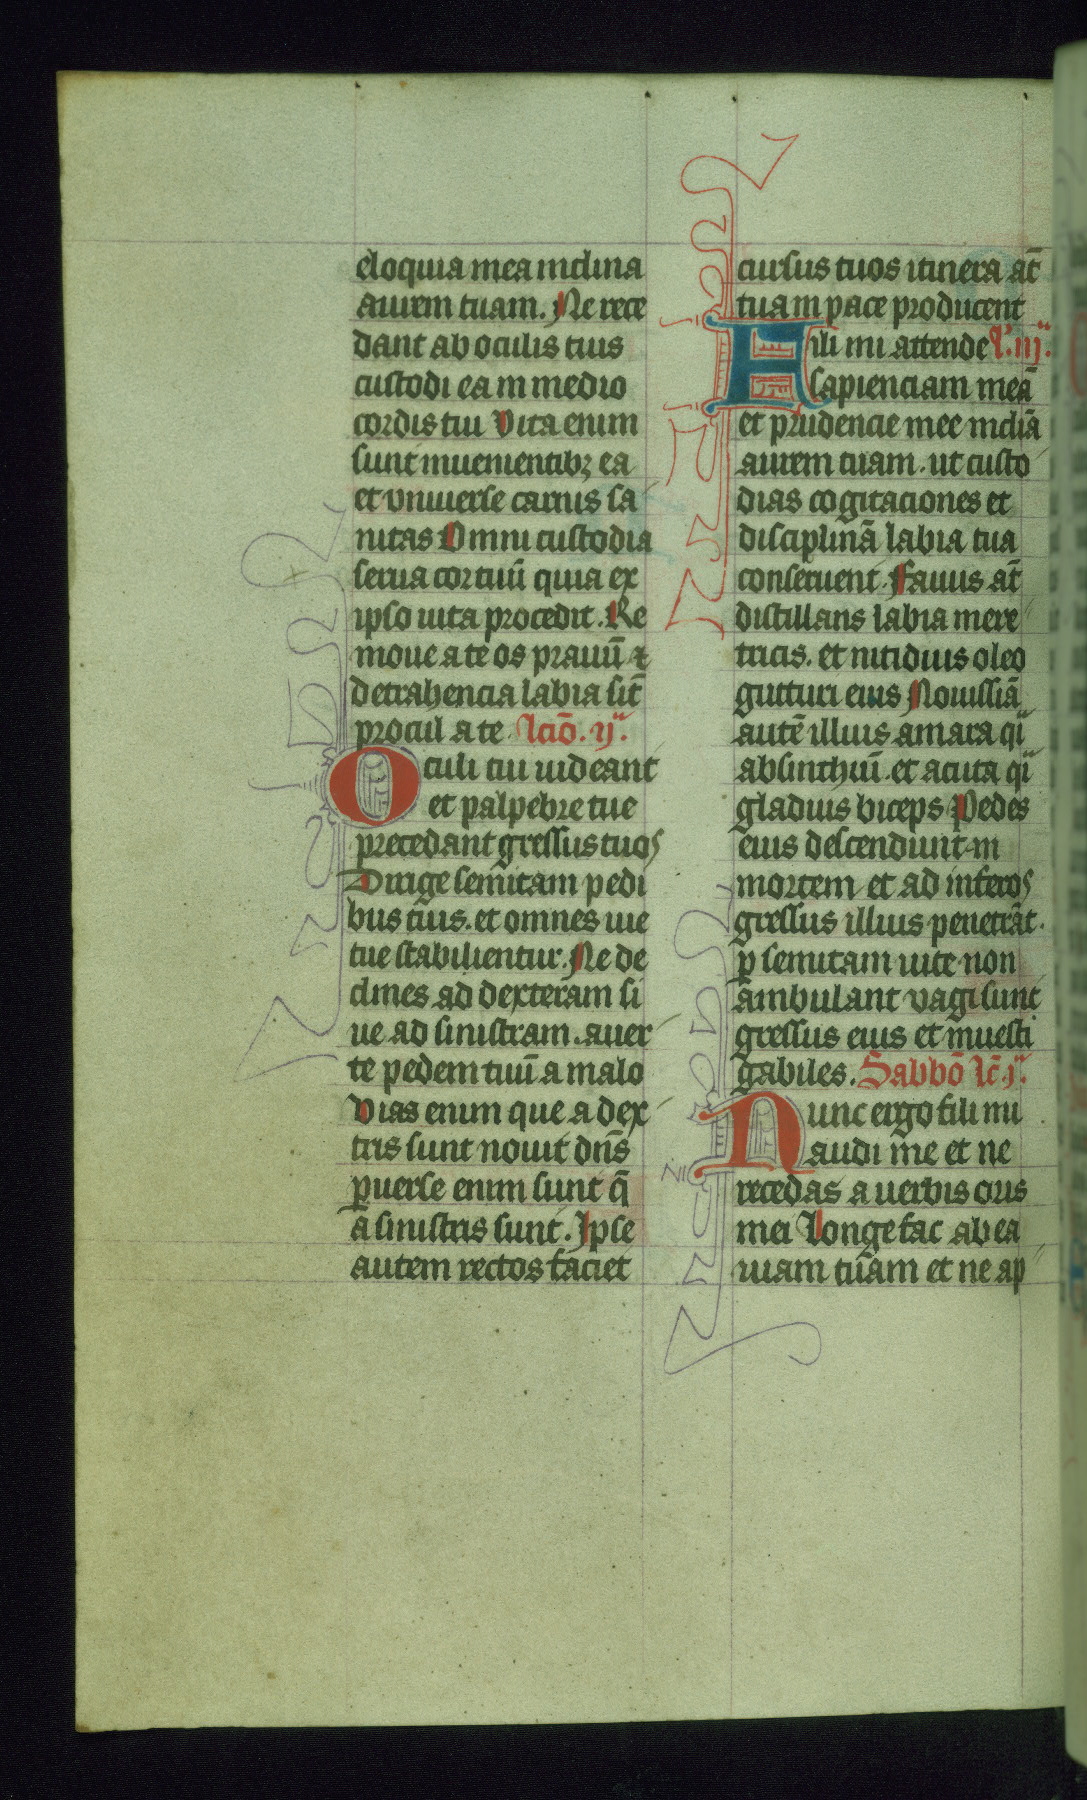 eloquia mea inclina
aurem tuam. Ne rece
dant ab oculis tuis
custodi ea in medio
cordis tui Vita enim
sunt inuenientibꝫ ea
et vniuerse carnis sa
nitas Omni custodia
serua cor tuū quia ex
ipso uita procedit. Re
moue a te os prauū ⁊
detrahencia labia sīt
procul a te. lcīo. ij.ª
Oculi tui uideant
et palpebre tue
precedant gressus tuos
Dirige semitam pedi
bus tuis. et omnes uie
tue stabilientur. Ne de
clines ad dexteram si
ue ad sinistram. auer
te pedem tuū a malo
Vias enim que a dex
tris sunt nouit dn̄s
ꝑuerse enim sunt q̄
a sinistris sunt. Ipse
autem rectos faciet
cursus tuos itinera at̄
tua in pace producent
Fili mi attende l'. iij.ª
sapienciam meā
et prudencie mee inclīa
aurem tuam. ut custo
dias cogitaciones et
disciplinā labia tua
conseruent. Fauus at̄
distillans labia mere
tricis. et nitidius oleo
gutturi eius Nouissīa
autē illius amara qͥ
absinthiū. et acuta qͥ
gladius biceps Pedes
eius descendunt in
mortem et ad inferos
gressus illius penetrāt.
ꝑ semitam uite non
ambulant vagi sunt
gressus eius et inuesti
gabiles. Sabbō lc̄. j.ª
Nunc ergo fili mi
audi me et ne
recedas a uerbis oris
mei Longe fac ab ea
uiam tuam et ne ap